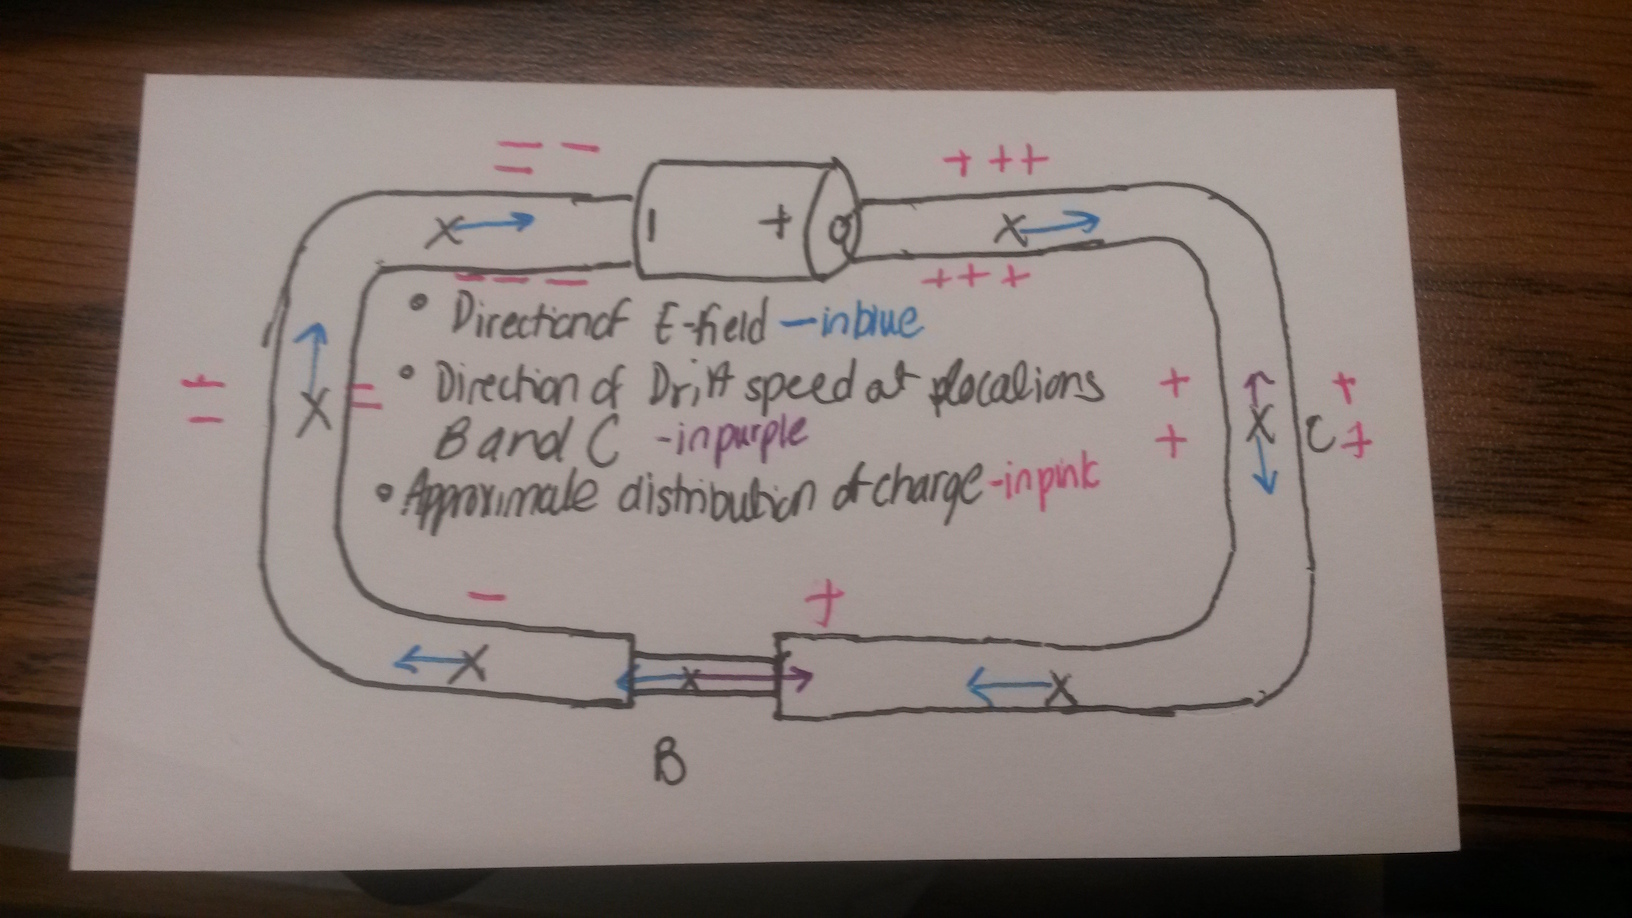 − − −
+ + +
X
| +
X
− − −
+ + +
• Direction of E-field — in blue
• Direction of Drift speed at locations
B and C - in purple
• Approximate distribution of charge - in pink
X
X C
− +
X X X
B